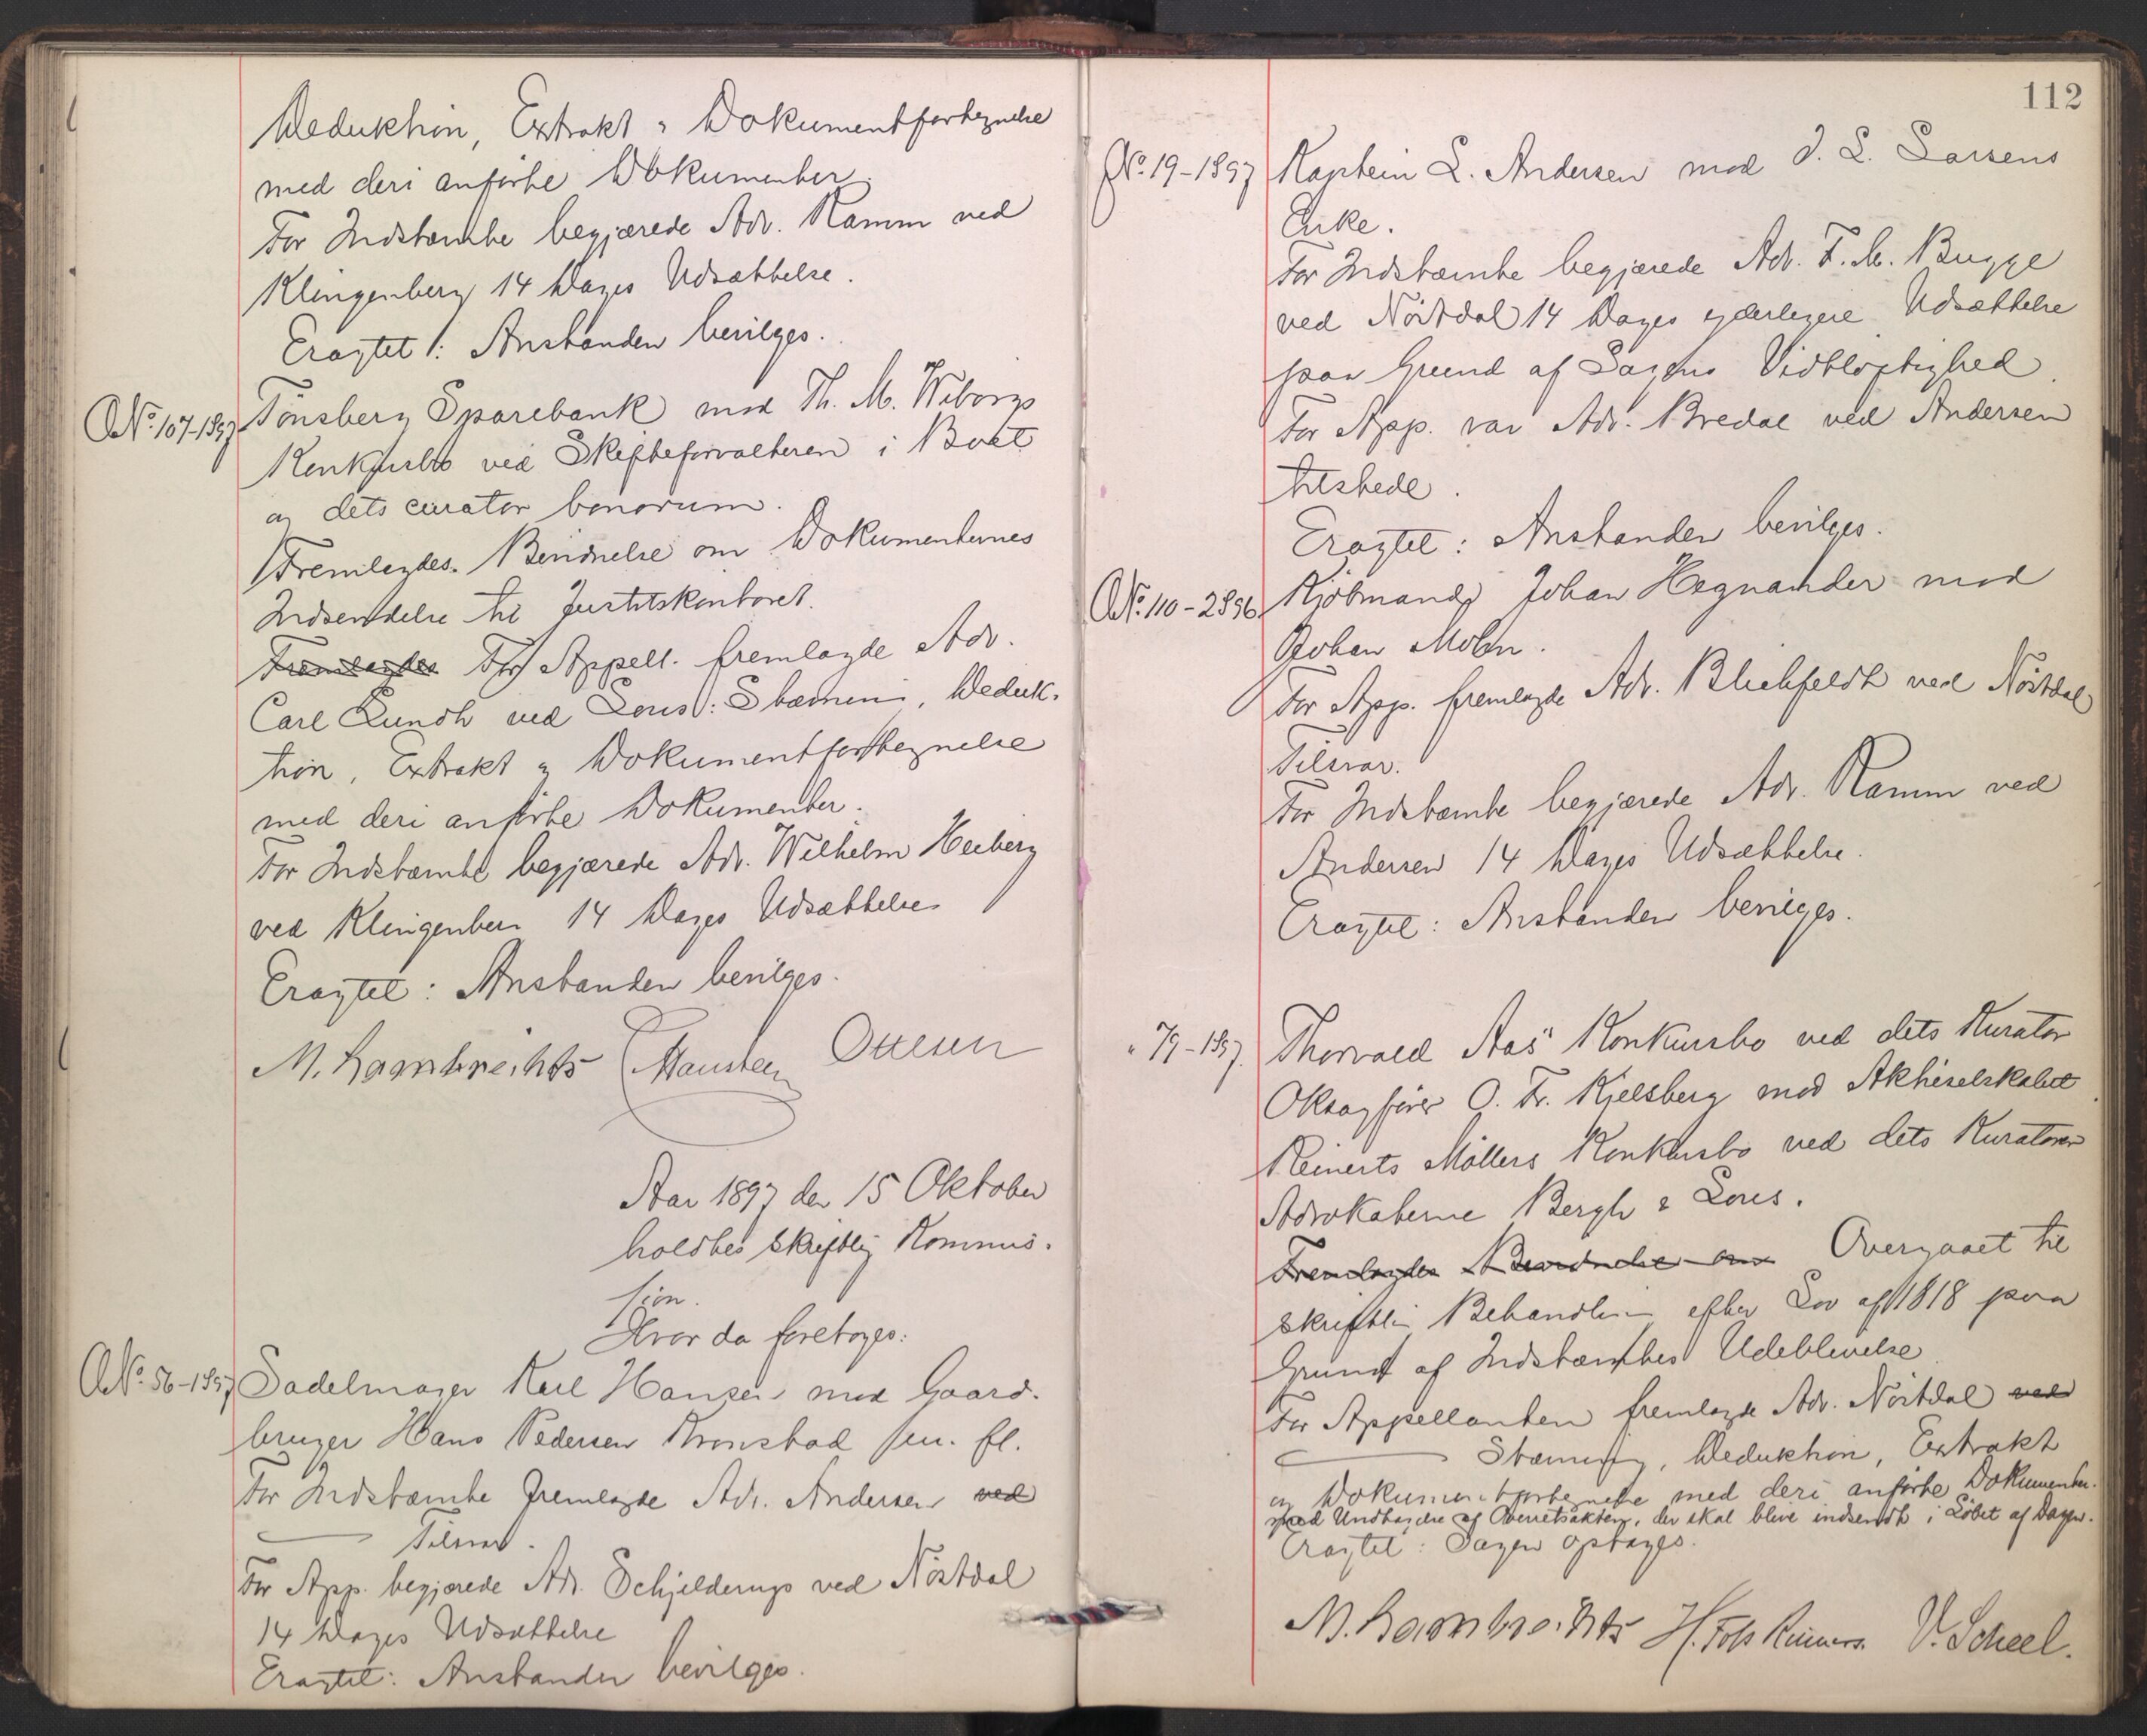 Deduktion, Extrakt & Dokumentfortegnelse
med deri anførte Dokumenter.
For Indstævnte begjærede Adv. Kamm ved
Klingenberg 14 Dages Udsættelse.
Eragtet: Anstanden bevilges.
No. 107-1897 Tönsberg Sparebank mod Th. M. Wiborgs
Konkursbo ved Skifteforvalteren i Boet
og dets curator bonorum.
Fremlagdes Bevidnelse om Dokumenternes
Indsendelse til Justitskontoret.
Fremlagdes For Appell. fremlagde Adv.
Carl Lundh ved Lous: Stævning, Deduk-
tion, Extrakt & Dokumentfortegnelse
med deri anførte Dokumenter.
For Indstævnte begjærede Adv. Wilhelm Heiberg
ved Klingenberg 14 Dages Udsættelse
Eragtet: Anstanden bevilges.
M. Lambrechts Hansteen Ottesen
Aar 1897 den 15 Oktober
holdtes skriftlig Kommis-
sion.
Hvor da foretoges:
No. 56-1897 Sadelmager Karl Hansen mod Gaard-
bruger Hans Pedersen Kronstad jun. fl.
For Indstævnte fremlagde Adv. Andersen ved
Tilsvar.
For App. begjærede Adv. Schjelderups ved Nöstdal
14 Dages Udsættelse
Eragtet: Anstanden bevilges.
112
No. 19-1897 Kaptein L. Andersen mod J. L. Larsens
Enke.
For Indstævnte begjærede Adv. F. M. Bugge
ved Nöstdal 14 Dages yderligere Udsættelse
paa Grund af Sagens Vidtløftighed.
For App. var Adv. Bredal ved Andersen
tilstede.
Eragtet: Anstanden bevilges.
No. 110-2896 Kjöbmand Johan Hegnander mod
Johan Molin.
For App. fremlagde Adv. Blichfeldt ved Nöstdal
Tilsvar.
For Indstævnte begjærede Adv. Kamm ved
Andersen 14 Dages Udsættelse.
Eragtet: Anstanden bevilges.
" 79-1897. Thorvald Aas' Konkursbo ved dets Kurator
Oksagfører O. Fr. Kjelsberg mod Aktieselskabet
Reinerts Möllers Konkursbo ved dets Kuratorer
Advokaterne Bergh & Lous.
Fremlagdes Bevidnelse om Overgaaet til
skriftlig Behandling efter Lov af 1818 paa
Grund af Indstævntes Udeblivelse
For Appellanten fremlagde Adv. Nöstdal ved
Stævning, Deduktion, Extrakt
og Dokumentfortegnelse med deri anførte Dokumenter.
med Undtagelse af Overretsakten, der skal blive indsendt i Løbet af Dagen.
Eragtet: Sagen optages.
M. Lambrechts H. Foss Reimers. V. Scheel.